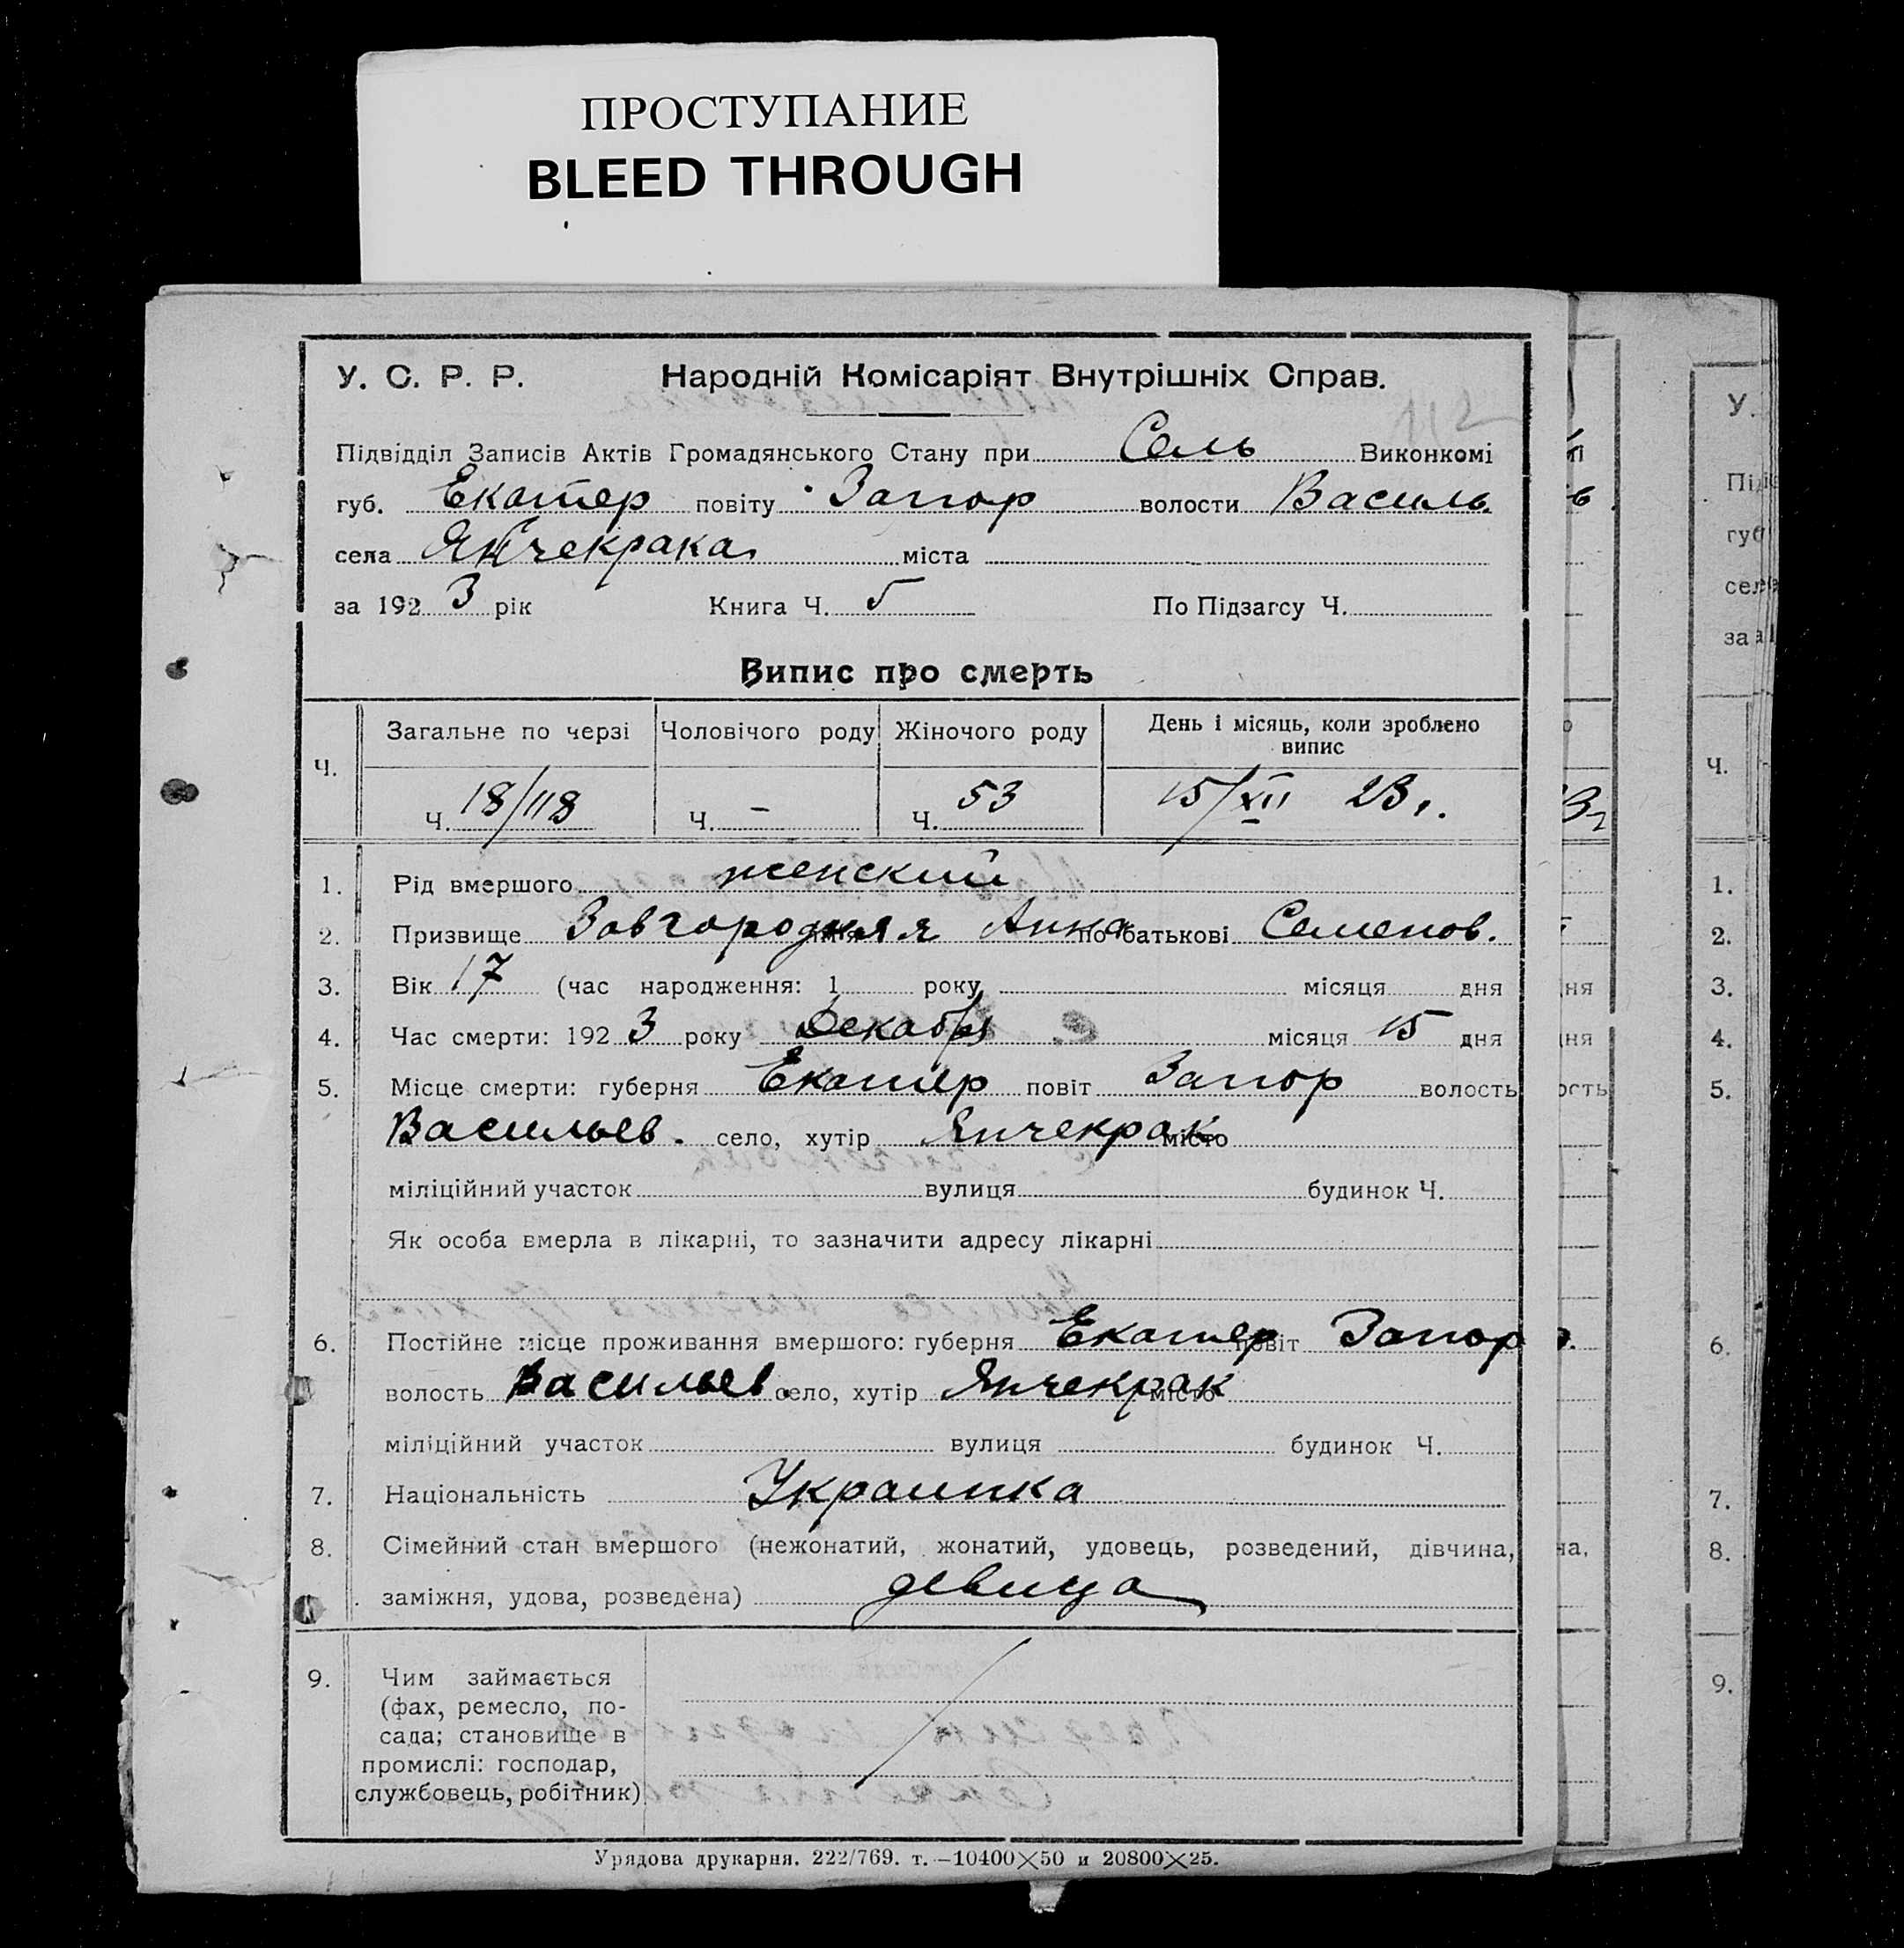 ПРОСТУПАНИЕ
BLEED THROUGH
У. С. Р. Р. Народній Комісаріят Внутрішніх Справ.
112
Підвідділ Записів Актів Громадянського Стану при Сель Виконкомі
губ. Екатер повіту Запор волости Василь.
села Янчекрака міста
за 1923 рік Книга Ч. 5 По Підзагсу Ч.
Випис про смерть
Ч. Загальне по черзі Чоловічого роду Жіночого роду День і місяць, коли зроблено випис
Ч. 18/118 Ч. – Ч. 53 15/XII 23 г.
1. Рід вмершого женский
2. Призвище Завгородняя Анна по батькові Семенов.
3. Вік 17 (час народження: 1 року місяця дня
4. Час смерти: 1923 року Декабря місяця 15 дня
5. Місце смерти: губерня Екатер повіт Запор волость
Васильев. село, хутір Янчекрак місто
міліційний участок вулиця будинок Ч.
Як особа вмерла в лікарні, то зазначити адресу лікарні
6. Постійне місце проживання вмершого: губерня Екатер повіт Запор
волость Васильев. село, хутір Янчекрак місто
міліційний участок вулиця будинок Ч.
7. Національність Украинка
8. Сімейний стан вмершого (нежонатий, жонатий, удовець, розведений, дівчина,
заміжня, удова, розведена) девица
9. Чим займається
(фах, ремесло, по-
сада; становище в
промислі: господар,
службовець, робітник)
Урядова друкарня. 222/769. т.—10400×50 и 20800×25.